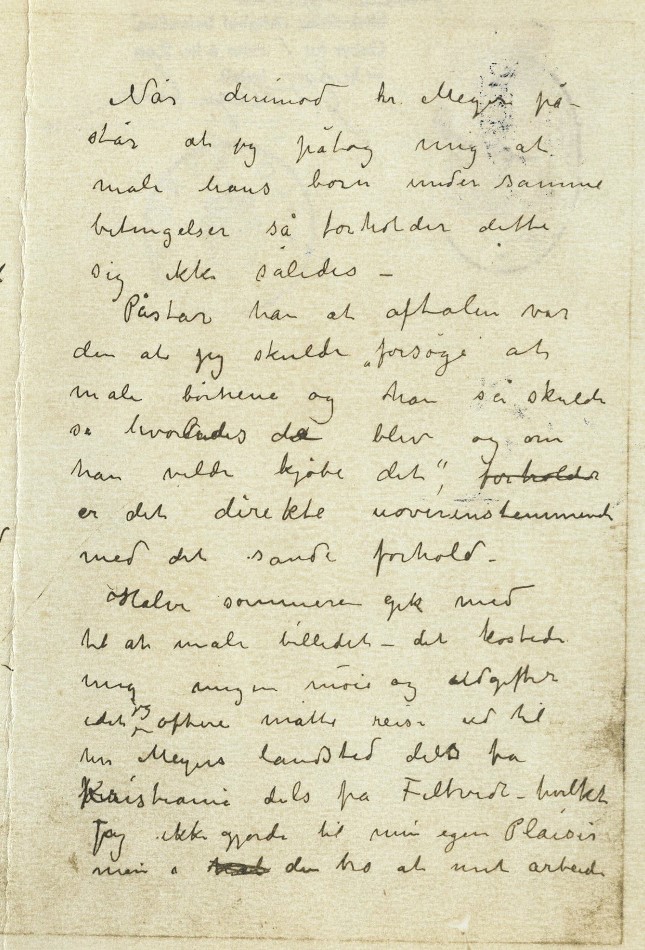 Når derimod hr. Meyer på-
står at jeg påtog mig at
male hans børn under samme
betingelser så forholder dette
sig ikke således –
Påstår han at aftalen var
den at jeg skulde „forsøge at
male børnene og han så skulde
se hvorledes det blev og om
han vilde kjøbe det“, forholder
er det direkte uoverensstemmende
med det sande forhold –
Halve sommeren gik med
til at male billedet – det kostede
mig megen møie og udgifter
idet jeg oftere måtte reise ud til
hr Meyers landsted dels fra
Kristiania dels fra Filtvedt – hvilket
jeg ikke gjorde til min egen Plaisir
men i den tro at mit arbeide